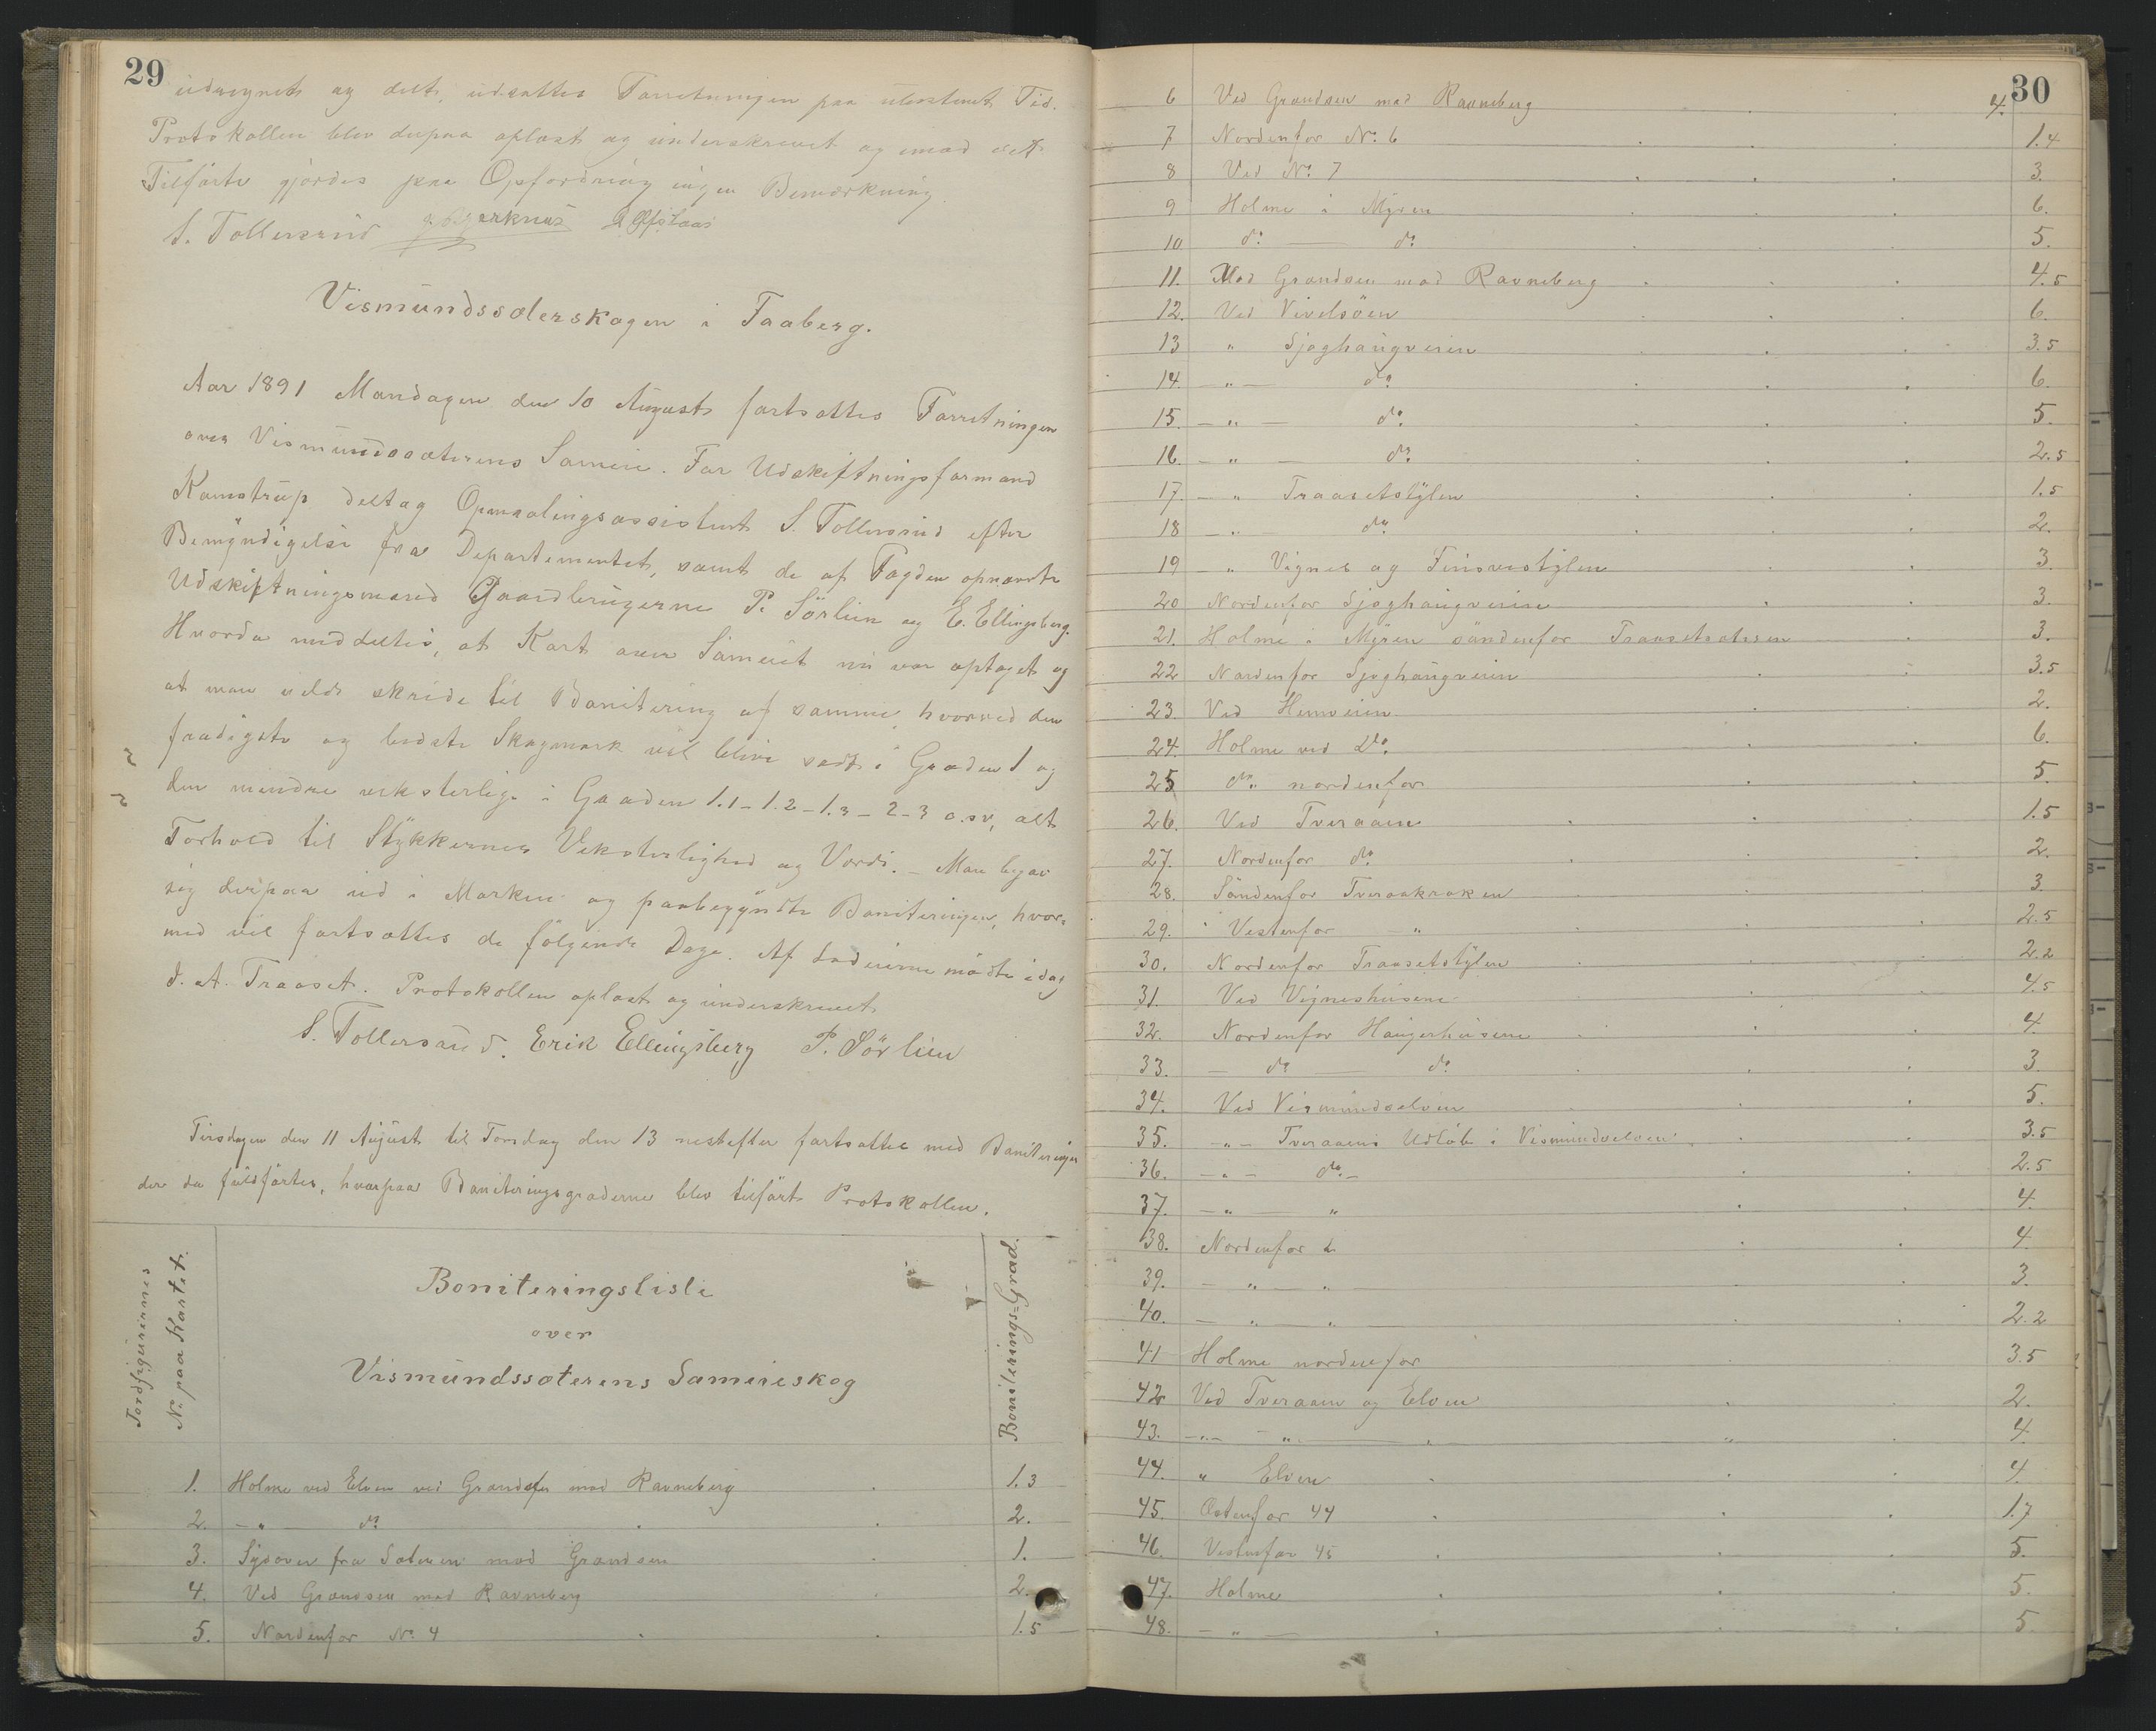 29
udregnet og delt, udsattes Forretningen paa ubestemt Tid.
Protokollen blev derpaa oplæst og underskrevet og imod det
Tilførte gjordes paa Opfordring ingen Bemærkning
S. Tollersrud
Vismundssæterskogen i Faaberg.
Aar 1891 Mandagen den 10 August fortsattes Forretningen
over Vismundssæterens Sameie. For Udskiftningsformand
Kamstrup deltog Opmaalingsassistent S. Tollersrud efter
Bemyndigelse fra Departementet, samt de af Fogden opnævnte
Udskiftningsmænd Gaardbrugerne P. Sörlien og E. Ellingsberg.
Hvorda meddeltes, at Kart over Sameiet nu var optaget og
at man vilde skride til Bonitering af samme, hvorved den
frodigste og bedste Skogmark vil blive sadt i Graden 1 og
den mindre veksterlige i Graden 1.1 - 1.2 - 1.3 - 2 - 3 o.sv, alt
Forhold til Stykkernes Veksterlighed og Værdi. - Man begav
sig derpaa ud i Marken og paabegyndte Boniteringen, hvor=
med vil fortsættes de følgende Dage. Af Lodeierne mödte idag
J. A. Traaset. Protokollen oplæst og underskrevet
S. Tollersrud. Erik Ellingsberg P. Sörlien
Tirsdagen den 11 August til Torsdag den 13 nestefter fortsattes med Boniteringen
der da fuldførtes, hvorpaa Boniteringsgraderne blev tilført Protokollen.
Jordfigurernes
No. paa Kartet.
Boniteringsliste
over
Vismundssæterens Sameieskog
Boniterings=Grad.
1. Holme ved Elven ved Grændsen mod Ravneberg . 1.3
2. - " - do. . . 2.
3. Sydover fra Sæteren mod Grændsen . 1.
4. Ved Grændsen mod Ravneberg . 2.
5. Nordenfor No. 4 . . 1.5
30
6 Ved Grændsen mod Ravneberg . . 4.
7 Nordenfor No. 6 . . . 1.4
8 Ved No. 7 . . . 3.
9 Holme i Myren . . . 6.
10 do. — do. . . . 5.
11. Mod Grændsen mod Ravneberg . . . 4.5
12. Ved Vivelsöen . . . 6.
13 " Sjoghaugveien . . . 3.5
14. - " - do. . . . 6.
15. - " - do. . . . 5.
16. - " - do. . . . 2.5
17. - " Traasetstylen . . . 1.5
18 - " do. . . . 2.
19 - " Vignes og Finsvestylen . . 3.
20 Nordenfor Sjoghaugveien . . 3.
21. Holme i Myren søndenfor Traasetsætren . 3.
22 Nordenfor Sjoghaugveien . . 3.5
23. Ved Hemveien . . 2.
24. Holme ved Do. . . 6.
25 do. nordenfor . . 5.
26. Ved Tveraaen . . . 1.5
27. Nordenfor do. . . . 2.
28. Søndenfor Tveraakroken . . . 3.
29. Vestenfor - " . . . 2.5
30. Nordenfor Traasetstylen . . . 2.2
31. Ved Vigneshusene . . 4.5
32. Nordenfor Haugerhusene . . . 4.
33. - do. — do. . . . 3.
34. Ved Vismundselven . . . 5.
35. - " - Tveraaens Udløb i Vismundselven . . 3.5
36. - " - do. - . . 2.5
37. - " - " . . 4.
38. Nordenfor d. . . 4.
39. - " - " . . 3.
40. - " - " - . . 2.2
41 Holme nordenfor . . 3.5
42 Ved Tveraaen og Elven . . 2.
43. - " - - " - . " . 4.
44. " Elven . . . 4.
45. Østenfor 44 . . . 1.7
46. Vestenfor 45 . . . 5.
47. Holme . . . 5.
48. - " - . . . 5.